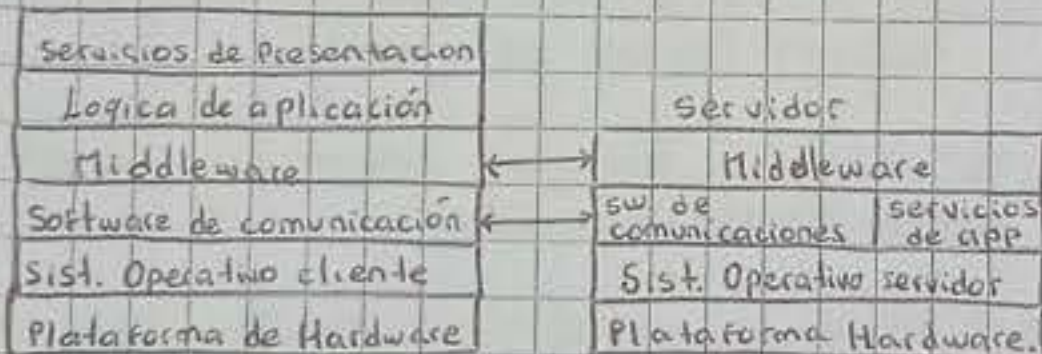 Servicios de Presentacion
Logica de aplicación
Middleware
Software de comunicación
Sist. Operativo cliente
Plataforma de Hardware
Servidor
Middleware
sw de comunicaciones
servicios de app
Sist. Operativo servidor
Plataforma Hardware.